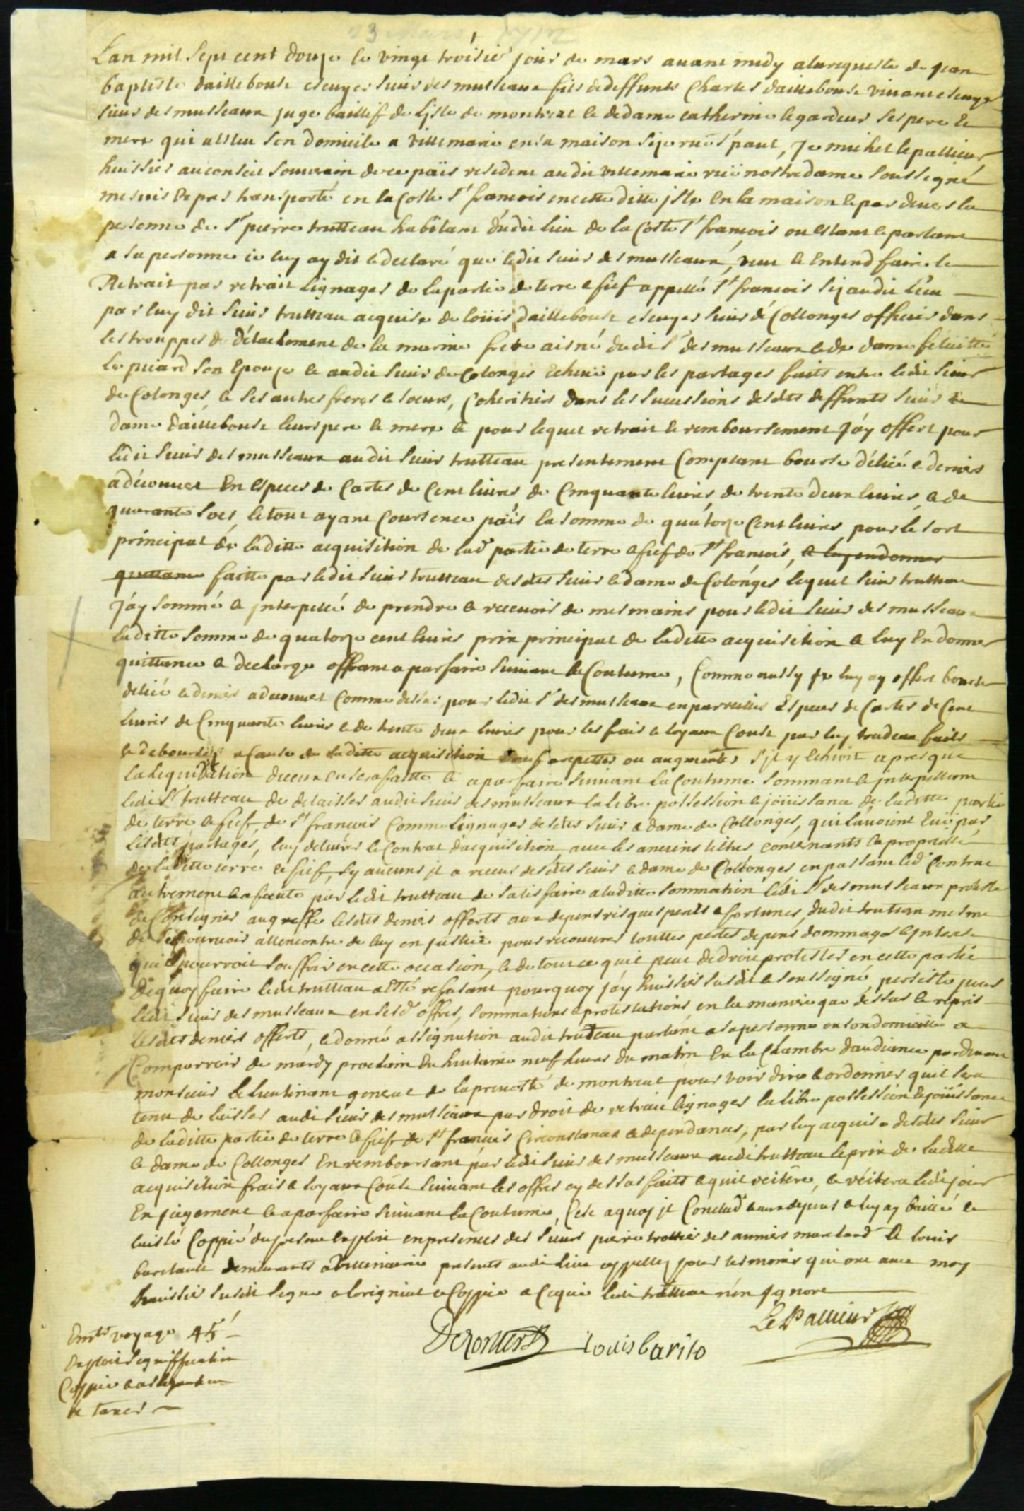 23 mars 1712
Lan mil sept cent douze le vingt troisie jour de mars avant midy a la requeste de jean
baptiste dailleboust escuyer sieur des musseaux fils de deffunts Charles dailleboust vivant escuyer
sieur des musseaux juge baillif de lisle de montreal et de dame catherine legardeur ses pere et
mere qui a esleu son domicile a villemarie en sa maison size rue st paul, Je michel lepallieur
huissier au conseil souverain de ce païs resident audit villemarie rüe nostre dame soussigné
me suis expres transporté en la coste st francois en cette ditte isle en la maison et par devers la
personne de sr pierre trutteau habitant dudit lieu de la coste st francois ou estant et parlant
a sa personne ie luy ay dit et declaré que ledit sieur des musseaux, veut et entend faire le
Retrait par retrait lignager de la partie de terre et fief appellé st francois size audit lieu
par luy dit sieur trutteau acquise de loüis dailleboust escuyer sieur de Collonges officier dans
les trouppes du détachement de la marine frere aisné dudit sr des musseaux et de dame felicitté
le picard son epouze et audit sieur de Colonges echeüe par les partages faits entre ledit sieur
de Colonges et ses autres freres et soeurs, Coheritiers dans les sucessions desdits deffunts sieur et
dame dailleboust leurs pere et mere et pour lequel retrait et remboursement J'ay offert pour
ledit sieur des musseaux audit sieur trutteau presentement Comptant bourse déliée et deniers
a découvert En especes de Cartes de Cent livres de Cinquante livres de trente deux livres et de
quarante sols le tout ayant Cours en ce païs la somme de quatorze Cent livres pour le sort
principal de laditte acquisition de lad partie de terre et fief de st francois, et luy en donner
quittance faitte par ledit sieur trutteau desdits sieur et dame de Colonges lequel sieur trutteau
J'ay sommé et interpellé de prendre et recevoir de mes mains pour ledit sieur des musseaux
laditte somme de quatorze cent livres prix principal de laditte acquisition et luy En donner
quittance et decharge offrant a parfaire suivant la Coutume, Comme aussy je luy ay offert bourse
deliée et deniers a decouvert Comme dessus pour ledit sr des musseaux en pareilles Especes de Cartes de Cent
livres de Cinquante livres et de trente deux livres pour les frais et loyaux Coust par luy trudeau faits
et deboursés a Cause de laditte acquisition sauf a repetter ou augmenter s'il y Echoit apres que
la liquidation diceux en sera faitte et a parfaire suivant la Coutume sommant et interpellant
ledit sr trutteau de delaisser audit sieur des musseaux la libre possession et joüissance de laditte partie
de terre et fief, de st francois Comme lignager desdits sieur et dame de Collonges, qui l'avoient Euë par
lesdits partages, luy delivrer le Contrat d'acquisition avec les anciens titres contenants la proprieté
de laditte terre et fief, sy aucuns il a receu desdits sieur et dame de Collonges en passant led Contrat
autrement et a faute par ledit trutteau de satisfaire a ladite sommation ledit sr des musseaux proteste
de Consigner au greffe lesdits deniers offerts aux depens risques perils et fortunes, dudit trutteau mesme
de se pourvoir allencontre de luy en justice pour recouvrer touttes pertes depens dommages et interest
qu'il pourroit souffrir en cette occasion, et de tout ce qui peut de droit protester en cette partie
De quoy faire ledit trutteau a esté refusant pourquoy j'ay huissier susdit et soussigné, persisté pour
ledit sieur des musseaux en sesd offres, sommations et protestations en la maniere que dessus et repris
lesdits deniers offerts, et donné assignation audit trudeau parlant a sa personne en son domicille a
Comparroir de mardy prochain en huitaine neuf heures du matin En la Chambre daudiance pardevant
monsieur le lieutenant general de la prevosté de montreal pour voir dire et ordonner quil sera
tenu de laisser audit sieur des musseaux par droit de retrait lignager la libre possession et joüissance
de laditte partie de terre et fief de st francois Circonstances et dependances, par luy acquise desdits sieur
et dame de Collonges En remboursant par ledit sieur des musseaux audit trutteau le prix de laditte
acquisition frais et loyaux Coust suivant les offres cy dessus faits et qu'il reitere, et reitera ledit jour
En jugement et a parfaire suivant la Coutume, C'est a quoy il Conclud aux depens et luy ay baillé et
laissé Coppie du present exploit en presence des sieurs pierre trottier des auniers marchand et louis
baritault demeurants a villemarie presents audit lieu appellez pour tesmoins qui ont avec moy
huissier susdit signé a loriginal et Coppie a ce que ledit trutteau n'en ignore
Le Pallieur
Louis barito
voyage 45
Exploit signiffication
Coppie
et taxes